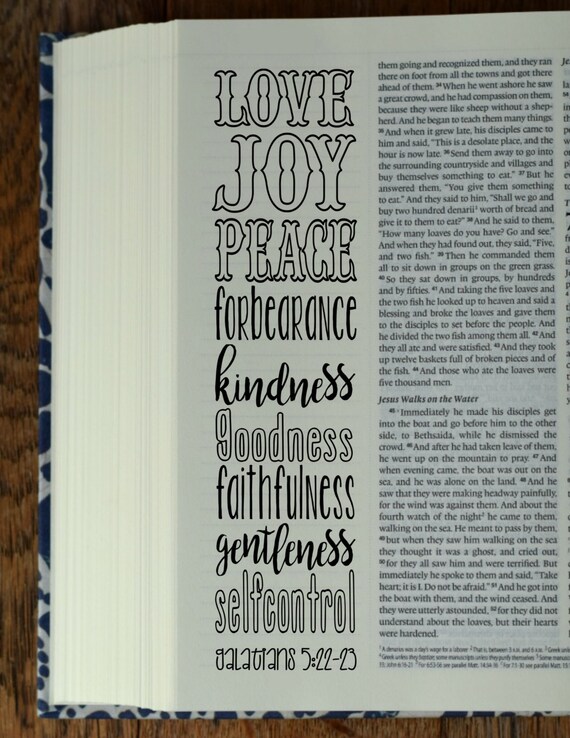 LOVE
JOY
PEACE
forbearance
kindness
goodness
faithfulness
gentleness
selfcontrol
galatians 5:22-23
them going and recognized them, and they ran
there on foot from all the towns and got there
ahead of them. 34 When he went ashore he saw
a great crowd, and he had compassion on them,
because they were like sheep without a shep-
herd. And he began to teach them many things.
35 And when it grew late, his disciples came to
him and said, "This is a desolate place, and the
hour is now late. 36 Send them away to go into
the surrounding countryside and villages and
buy themselves something to eat." 37 But he
answered them, "You give them something
to eat." And they said to him, "Shall we go and
buy two hundred denarii1 worth of bread and
give it to them to eat?" 38 And he said to them,
"How many loaves do you have? Go and see."
And when they had found out, they said, "Five,
and two fish." 39 Then he commanded them
all to sit down in groups on the green grass.
40 So they sat down in groups, by hundreds
and by fifties. 41 And taking the five loaves and
the two fish he looked up to heaven and said a
blessing and broke the loaves and gave them
to the disciples to set before the people. And
he divided the two fish among them all. 42 And
they all ate and were satisfied. 43 And they took
up twelve baskets full of broken pieces and of
the fish. 44 And those who ate the loaves were
five thousand men.
Jesus Walks on the Water
45 Immediately he made his disciples get
into the boat and go before him to the other
side, to Bethsaida, while he dismissed the
crowd. 46 And after he had taken leave of them,
he went up on the mountain to pray. 47 And
when evening came, the boat was out on the
sea, and he was alone on the land. 48 And he
saw that they were making headway painfully,
for the wind was against them. And about the
fourth watch of the night2 he came to them,
walking on the sea. He meant to pass by them,
49 but when they saw him walking on the sea
they thought it was a ghost, and cried out,
50 for they all saw him and were terrified. But
immediately he spoke to them and said, "Take
heart; it is I. Do not be afraid." 51 And he got into
the boat with them, and the wind ceased. And
they were utterly astounded, 52 for they did not
understand about the loaves, but their hearts
were hardened.
1 A denarius was a day's wage for a laborer 2 That is, between 3 A.M. and 6 A.M.